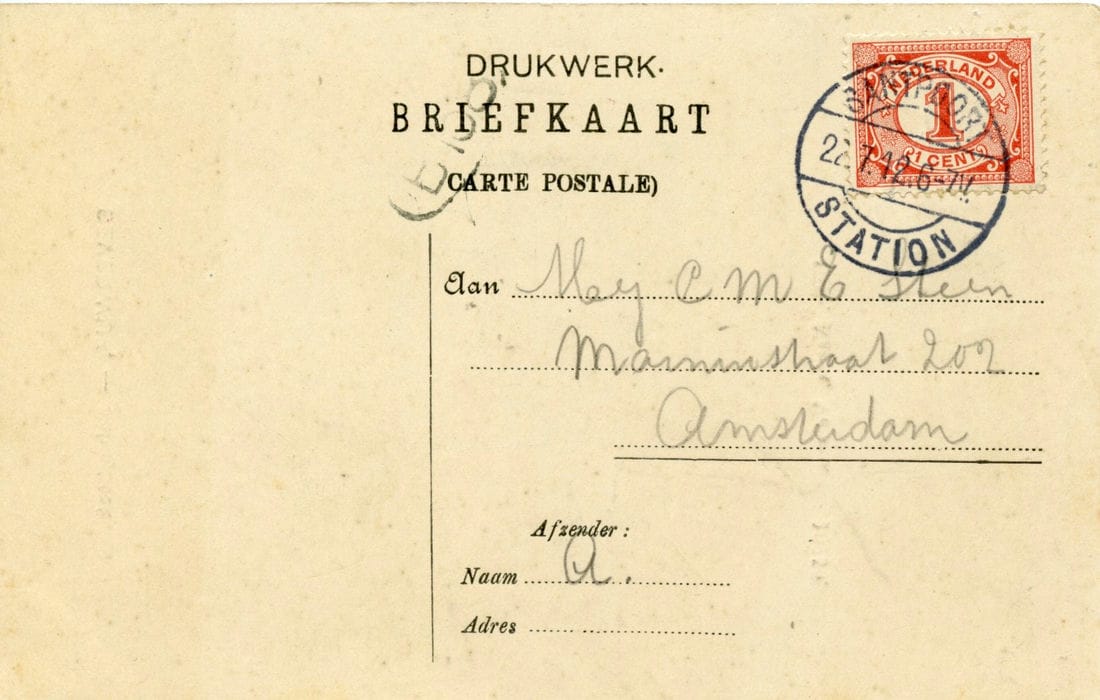 DRUKWERK.
BRIEFKAART
CARTE POSTALE)
NEDERLAND
1
1 CENT
SANTPOORT
22.7.12.6-7N.
STATION
Aan Mej C M E Steen
Marnixstraat 202
Amsterdam
Afzender:
Naam A.
Adres